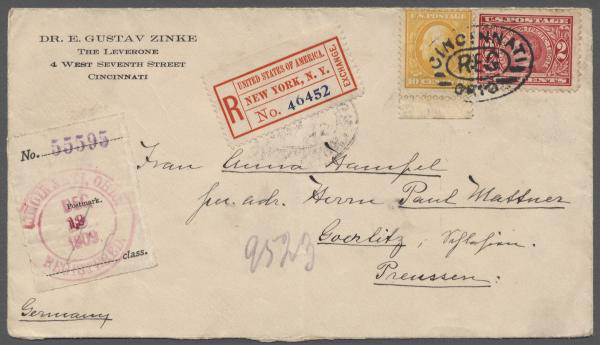 DR. E. GUSTAV ZINKE
THE LEVERONE
4 WEST SEVENTH STREET
CINCINNATI
R
UNITED STATES OF AMERICA.
NEW YORK, N. Y.
No. 46452
EXCHANGE.
U.S. POSTAGE
10 CENTS
U.S. POSTAGE
2 CENTS
CINCINNATI
OHIO
No. 55595
CINCINNATI, OHIO
DEC
Postmark.
13
1909
REGISTERED
class.
Frau Anna Hampel
per adr. Herrn Paul Mattner
Goerlitz, Schlesien.
Preussen.
9523
Germany